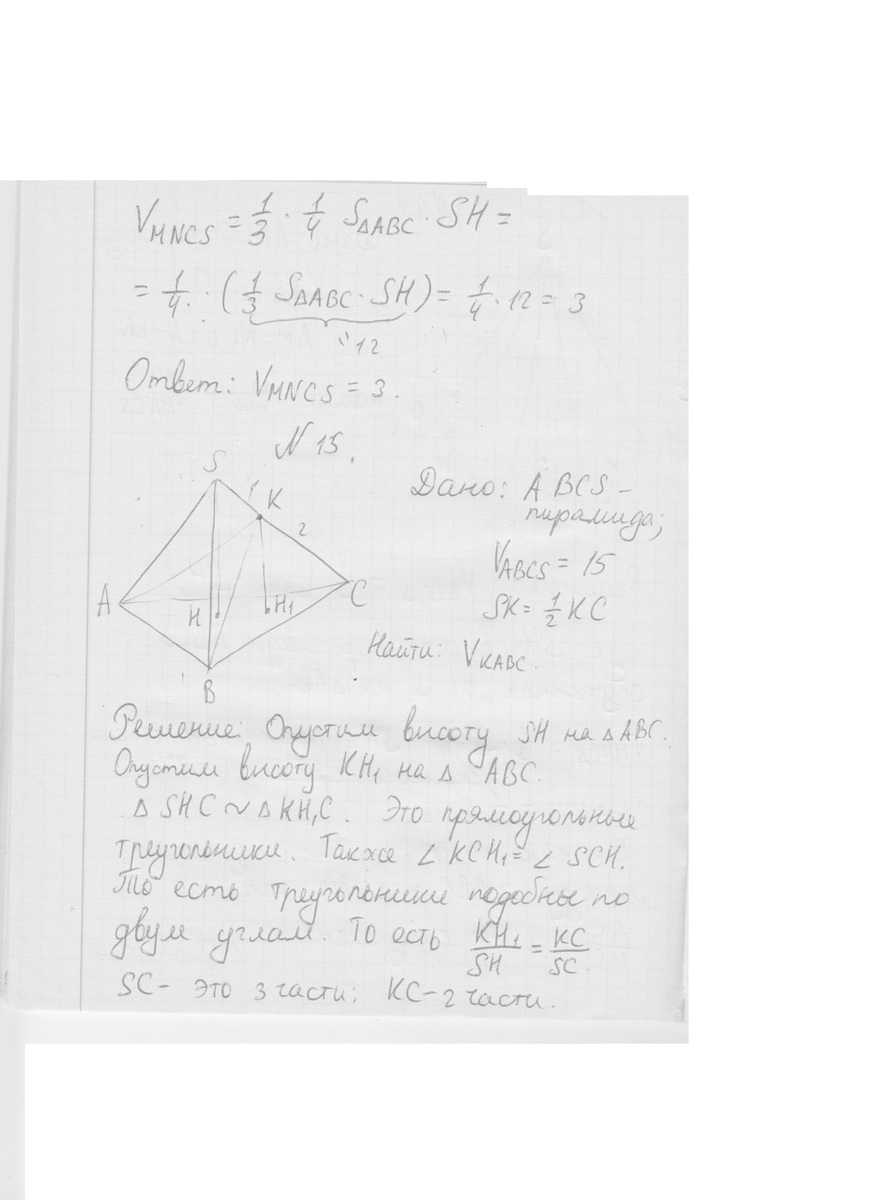 V_MNCS = 1/3 · 1/4 S△ABC · SH =
= 1/4 · (1/3 S△ABC · SH) = 1/4 · 12 = 3
" 12
Ответ: V_MNCS = 3.
N 15.
S
1
K
2
A
H
H₁
C
B
Дано: ABCS –
пирамида;
V_ABCS = 15
SK = 1/2 KC
Найти: V_KABC.
Решение: Опустим висоту SH на △ABC.
Опустим висоту KH₁ на △ ABC.
△ SHC ~ △ KH₁C. Это прямоугольные
треугольники. Также ∠ KCH₁ = ∠ SCH.
То есть треугольники подобны по
двум углам. То есть KH₁/SH = KC/SC.
SC – это 3 части; KC – 2 части.